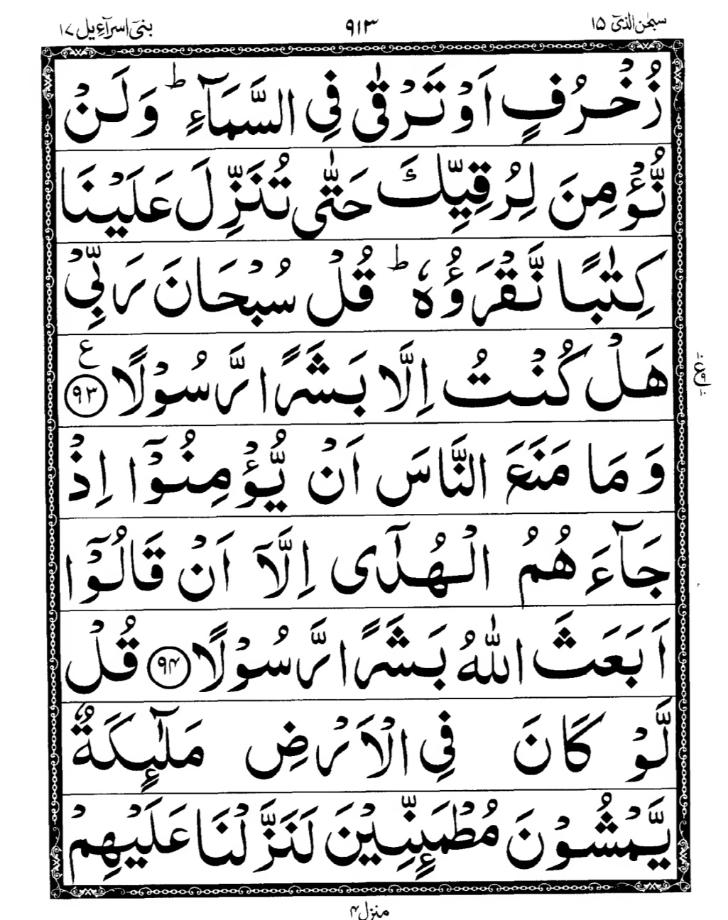 سبحٰن الذیٓ ۱۵ ۹۱۳ بنیٓ اسرآءیل ۱۷
زُخْرُفٍ اَوْ تَرْقٰى فِى السَّمَآءِ ؕ وَلَنْ
نُّؤْمِنَ لِرُقِيِّكَ حَتّٰى تُنَزِّلَ عَلَيْنَا
كِتٰبًا نَّقْرَؤُهٗ ؕ قُلْ سُبْحَانَ رَبِّىْ
هَلْ كُنْتُ اِلَّا بَشَرًا رَّسُوْلًا ﴿۹۳﴾ ع
وَمَا مَنَعَ النَّاسَ اَنْ يُّؤْمِنُوْٓا اِذْ
جَآءَهُمُ الْهُدٰٓى اِلَّآ اَنْ قَالُوْٓا
اَبَعَثَ اللّٰهُ بَشَرًا رَّسُوْلًا ﴿۹۴﴾ قُلْ
لَّوْ كَانَ فِى الْاَرْضِ مَلٰٓئِكَةٌ
يَّمْشُوْنَ مُطْمَئِنِّيْنَ لَنَزَّلْنَا عَلَيْهِمْ
منزل ۴